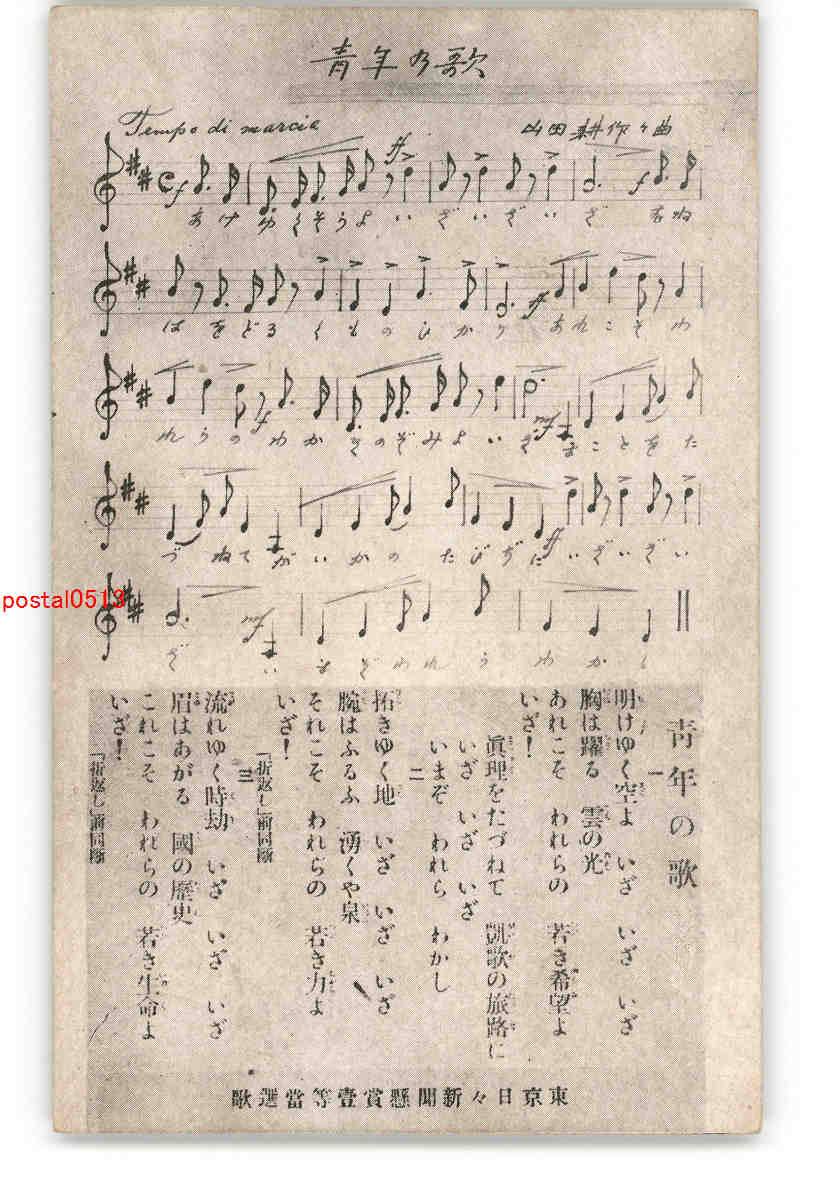 青年の歌
Tempo di marcia
山田耕作々曲
f ff f
あけゆくそらよいざいざいざむね
ff
はをどるくものひかりあれこそわ
f mf
れらのわかきのぞみよいざまことをた
ff
づねてがいかのたびぢにいざいざい
mf
ざいまぞわれらわかし
postal0513
青年の歌
一
明けゆく空よ いざ いざ いざ
胸は躍る 雲の光
あれこそ われらの 若き希望よ
いざ!
眞理をたづねて 凱歌の旅路に
いざ いざ いざ
いまぞ われら わかし
二
拓きゆく地 いざ いざ いざ
腕はふるふ 湧くや泉
それこそ われらの 若き力よ
いざ!
「折返し」前同斷
三
流れゆく時劫 いざ いざ いざ
眉はあがる 國の歷史
これこそ われらの 若き生命よ
いざ!
「折返し」前同斷
東京日々新聞懸賞壹等當選歌